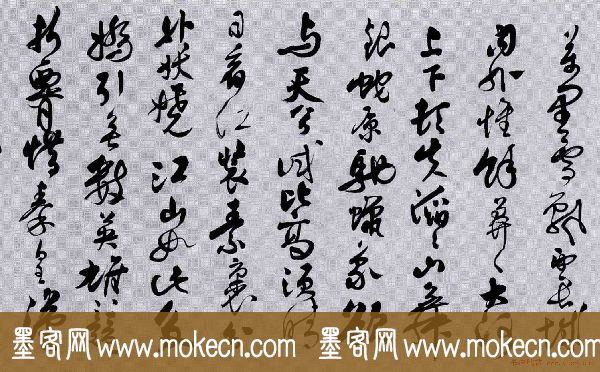 萬里雪飘望长城
内外惟餘莽々大河
上下顿失滔々山舞
銀蛇原驰蠟象欲
与天公试比高须晴
日看红装素裹分
外妖娆江山如此多
娇引无数英雄競
折腰惜秦皇漢
墨客网 www.mokecn.com 墨客网 www.mokecn.com